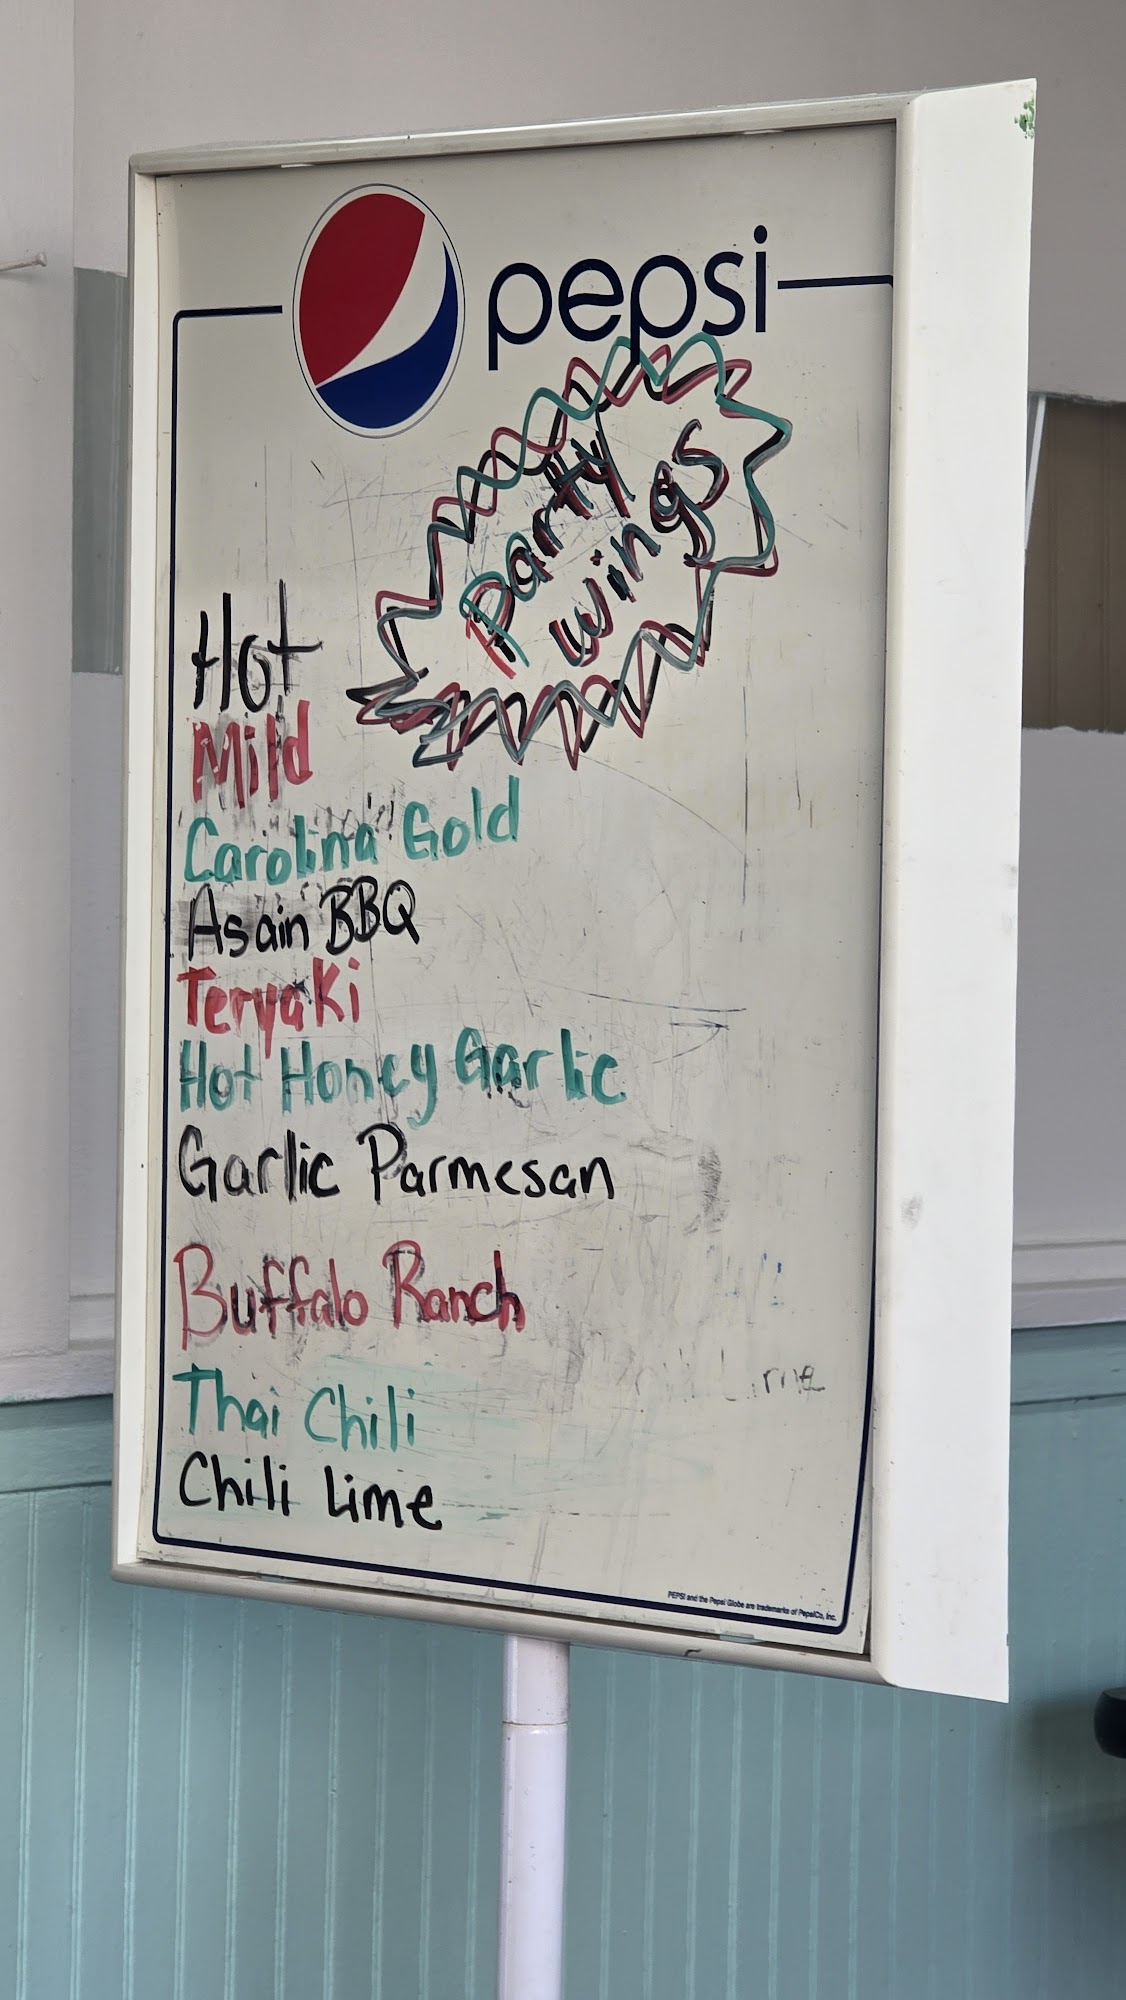 pepsi
Party
wings
Hot
Mild
Carolina Gold
Asain BBQ
Teryaki
Hot Honey Garlic
Garlic Parmesan
Buffalo Ranch
Thai Chili
Chili Lime
PEPSI and the Pepsi Globe are trademarks of PepsiCo, Inc.